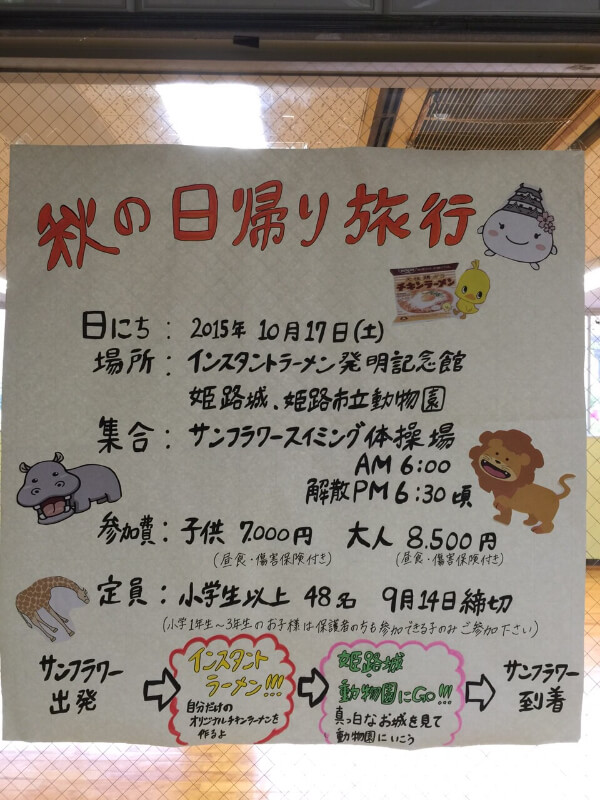 秋の日帰り旅行
チキンラーメン
日にち: 2015年 10月17日(土)
場所: インスタントラーメン発明記念館
姫路城、姫路市立動物園
集合: サンフラワースイミング体操場
AM 6:00
解散PM 6:30頃
参加費: 子供 7.000円 大人 8.500円
(昼食・傷害保険付き) (昼食・傷害保険付き)
定員: 小学生以上 48名 9月14日締切
(小学1年生~3年生のお子様は保護者の方も参加できる子のみご参加下さい)
サンフラワー
出発
インスタント
ラーメン!!!
自分だけの
オリジナルチキンラーメンを
作るよ
姫路城・
動物園にGO!!!
真っ白なお城を見て
動物園にいこう
サンフラワー
到着